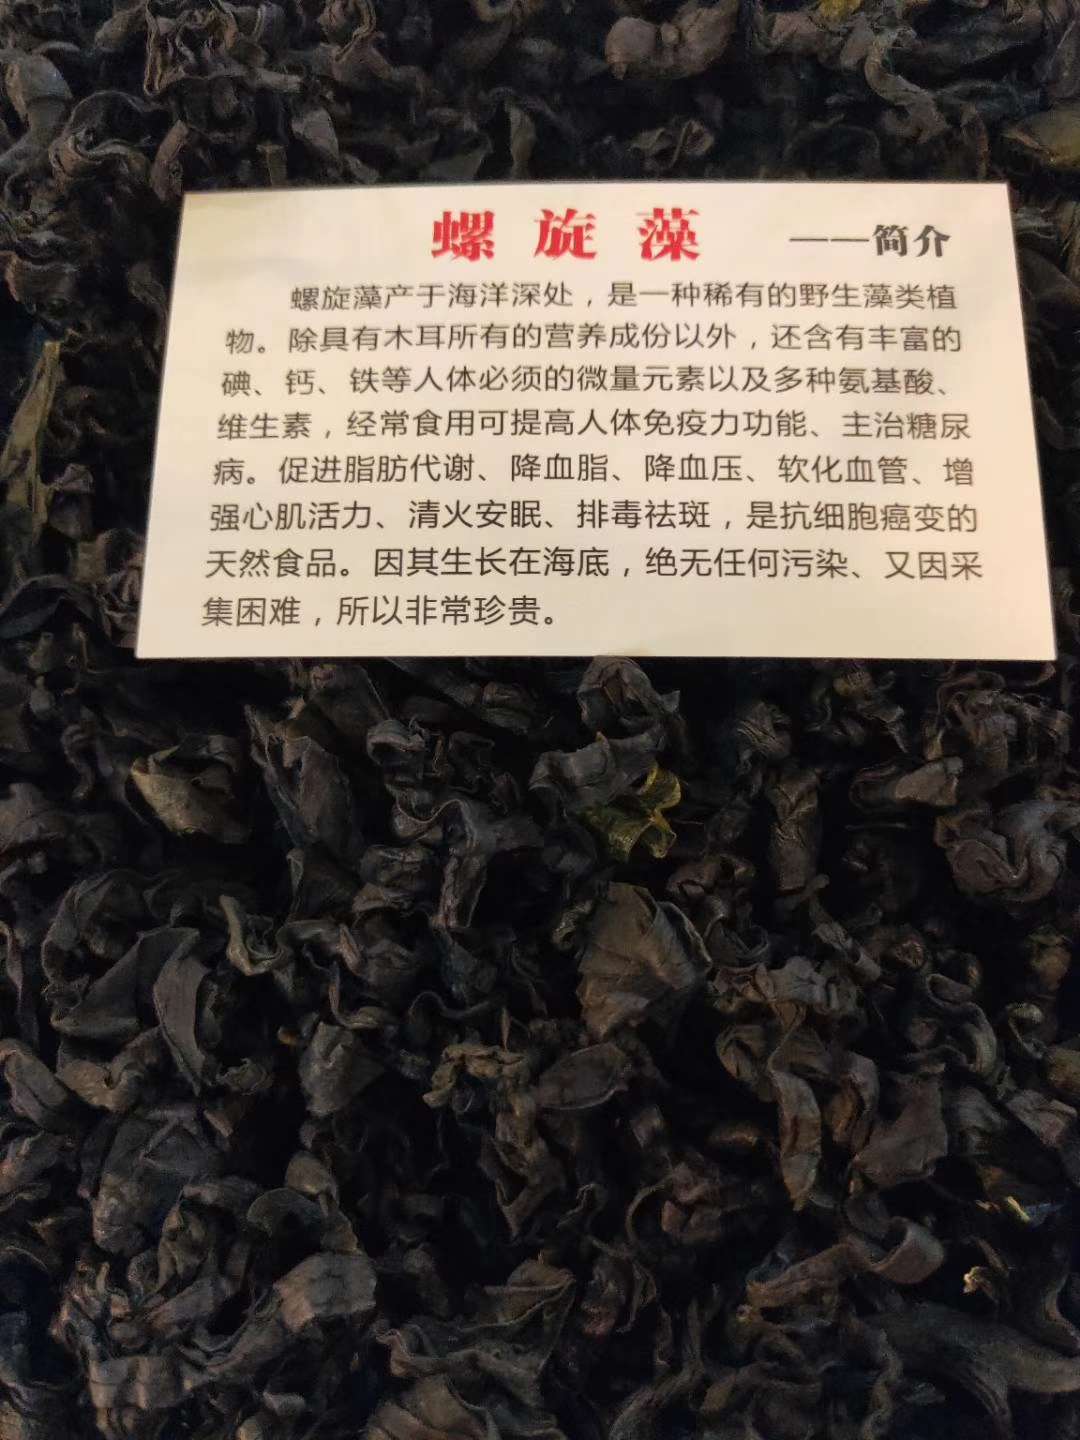 螺旋藻 ——简介
螺旋藻产于海洋深处，是一种稀有的野生藻类植
物。除具有木耳所有的营养成份以外，还含有丰富的
碘、钙、铁等人体必须的微量元素以及多种氨基酸、
维生素，经常食用可提高人体免疫力功能、主治糖尿
病。促进脂肪代谢、降血脂、降血压、软化血管、增
强心肌活力、清火安眠、排毒祛斑，是抗细胞癌变的
天然食品。因其生长在海底，绝无任何污染、又因采
集困难，所以非常珍贵。